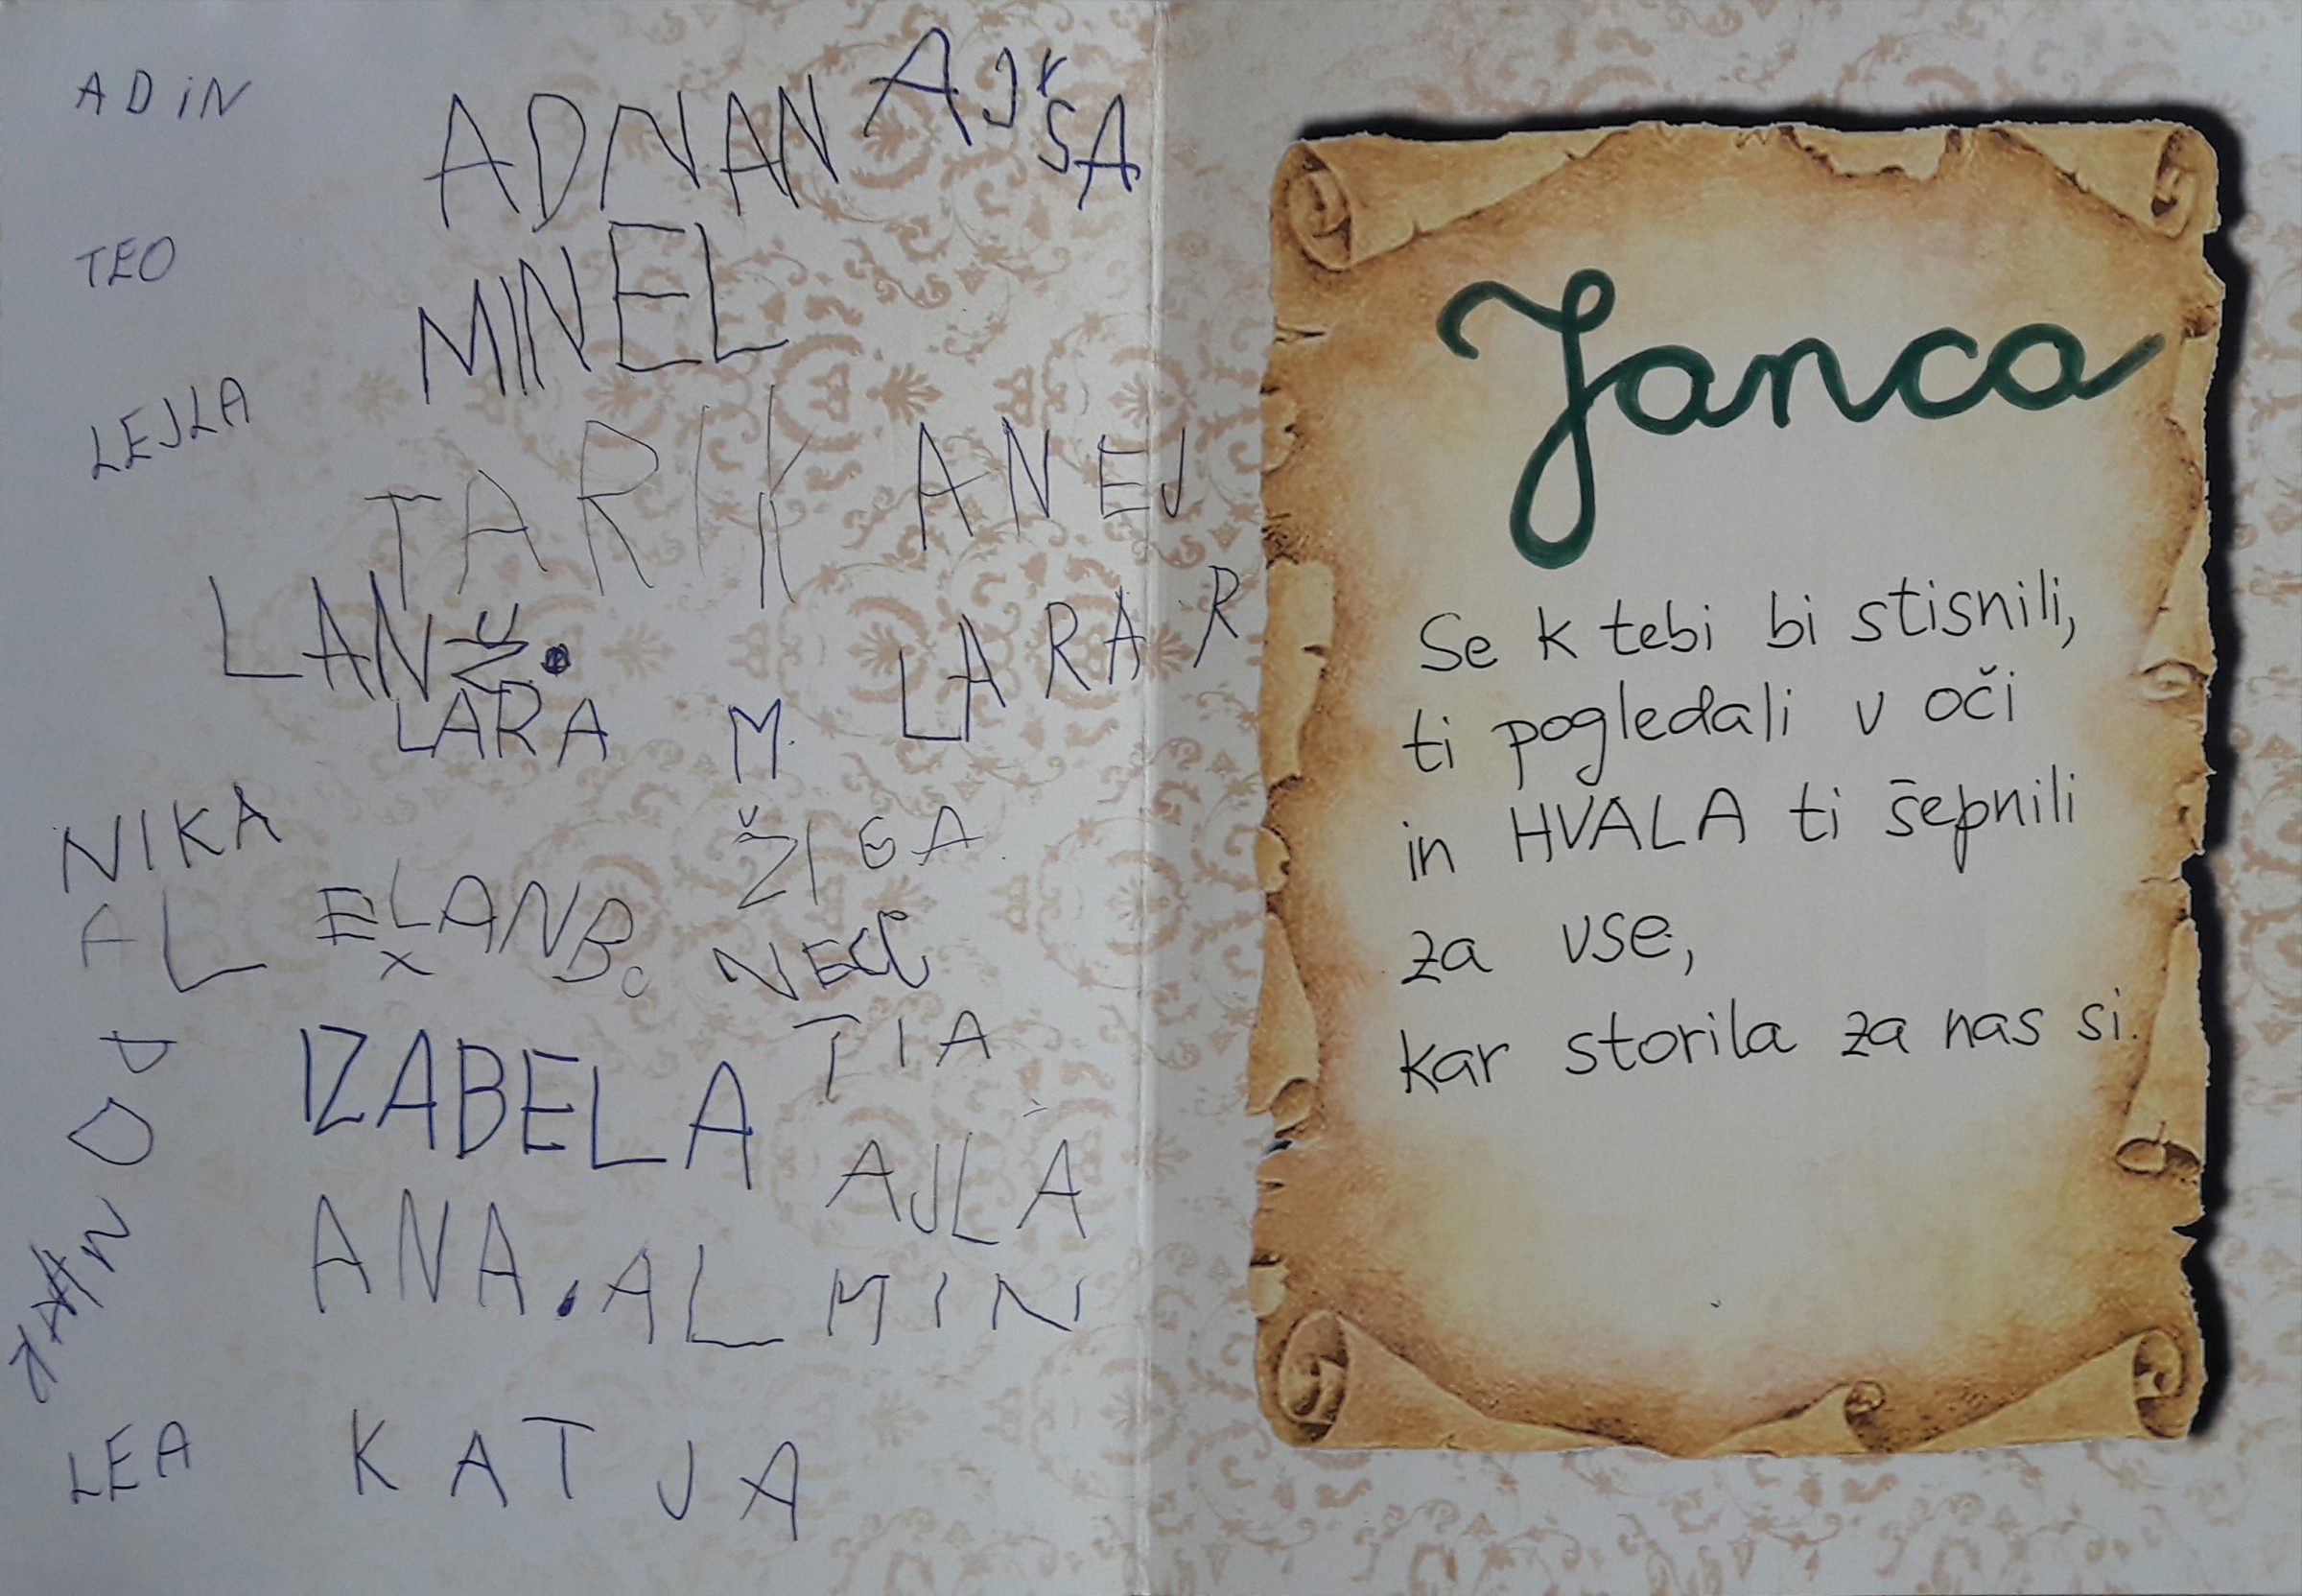 ADiN
ADNAN
AJŠA
TEO
MINEL
LEJLA
TARIK
ANEJ
LAN Ž.
LARA R
LARA M.
NIKA
ŽIGA
AL
LAN B.
NEJC
IZABELA
TIA
AJLA
ANA.
ALMIN
LEA
KATJA
Janca
Se k tebi bi stisnili,
ti pogledali v oči
in HVALA ti šepnili
za vse,
kar storila za nas si.